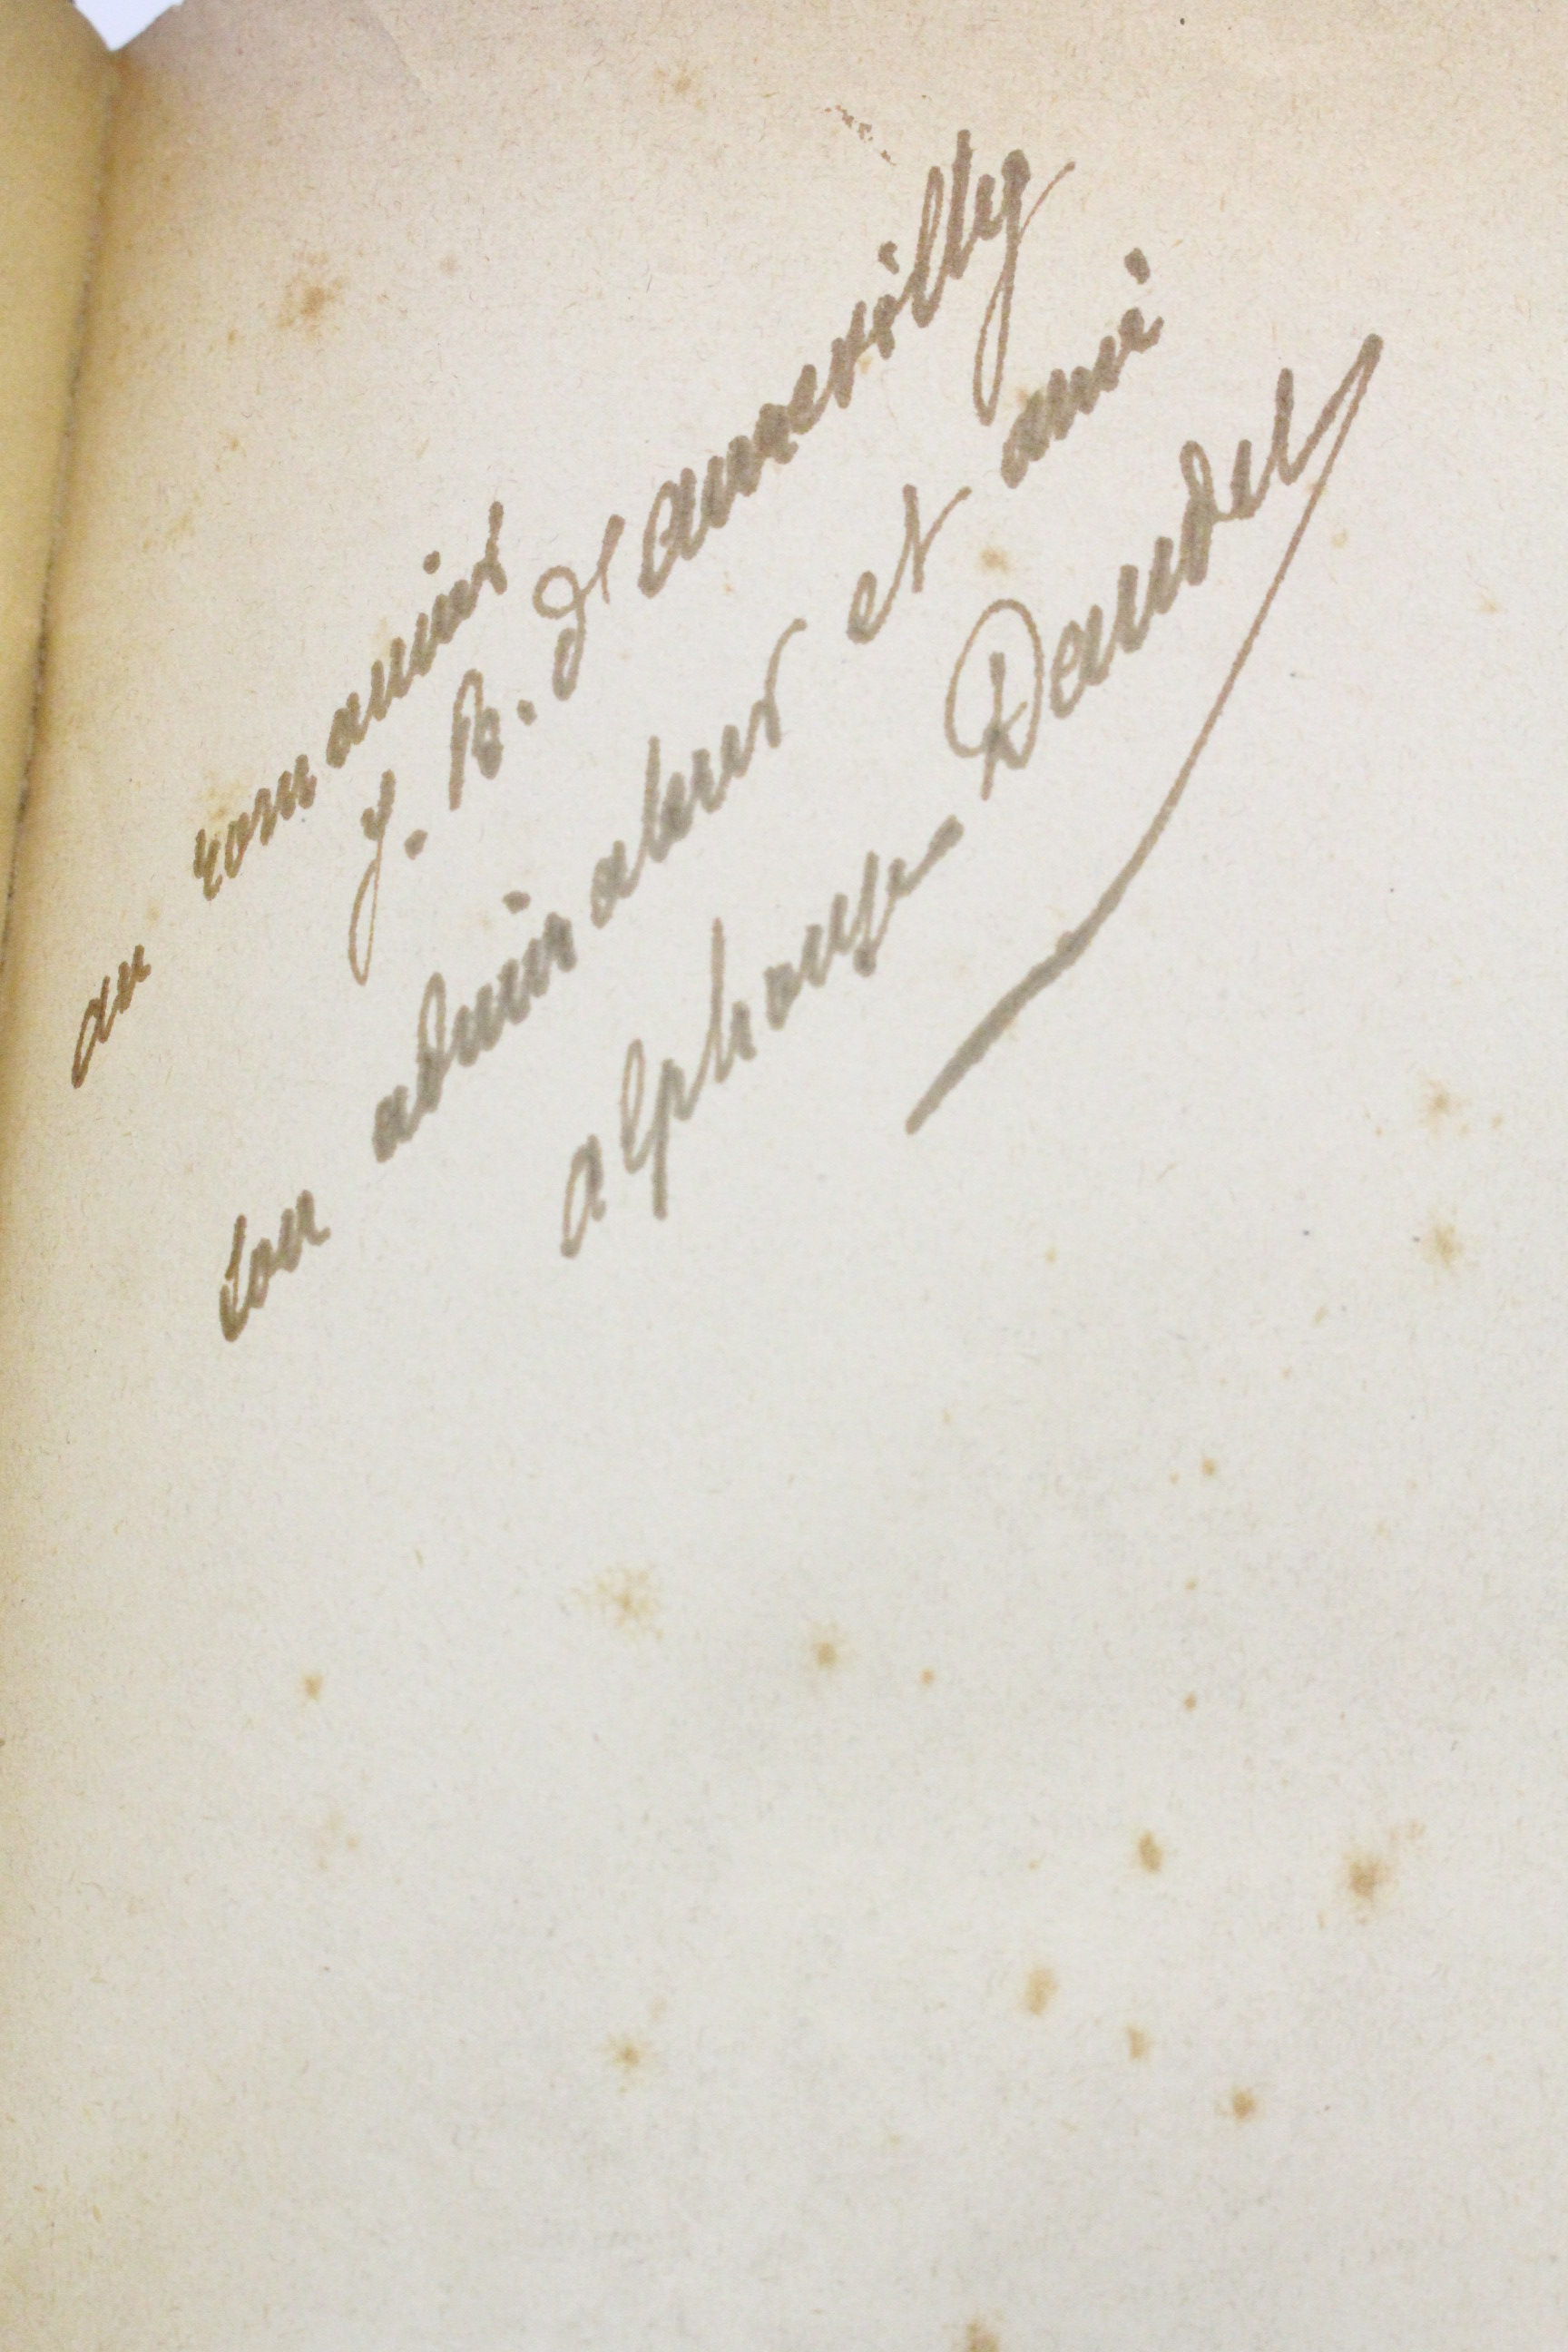 au romancier
J. B. d'aurevilly
son admirateur et ami
alphonse Daudet